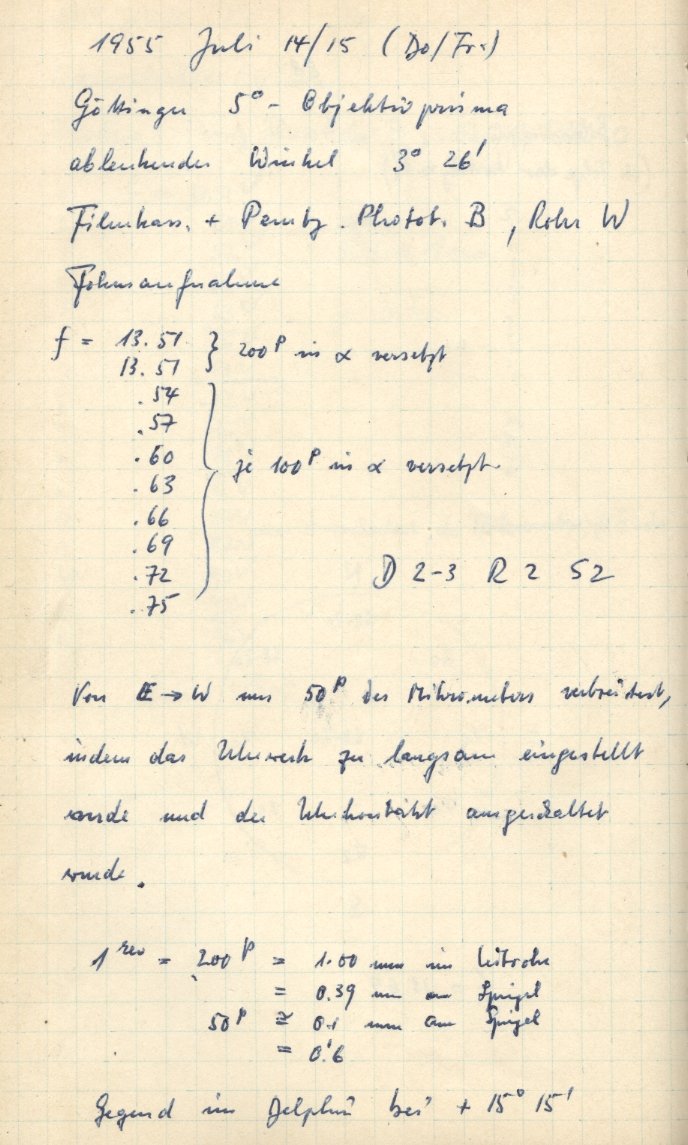 1955 Juli 14/15 (Do/Fr.)
Göttinger 5° - Objektivprisma
ablenkender Winkel 3° 26'
Filmkass. + Perutz. Photot. B, Rohr W
Fokusaufnahme
f = 13.51 } 200ᵖ in α versetzt
13.51
.54
.57
.60
.63 } je 100ᵖ in α versetzt.
.66
.69
.72 D 2-3 R 2 S2
.75
Von E → W um 50ᵖ des Mikrometers verbreitert,
indem das Uhrwerk zu langsam eingestellt
wurde und der Uhrkontakt ausgeschaltet
wurde.
1 rev = 200ᵖ = 1.00 mm im Leitrohr
= 0.39 mm am Spiegel
50ᵖ ≅ 0.1 mm am Spiegel
= 0!6
Gegend im Delphin bei + 15° 15'